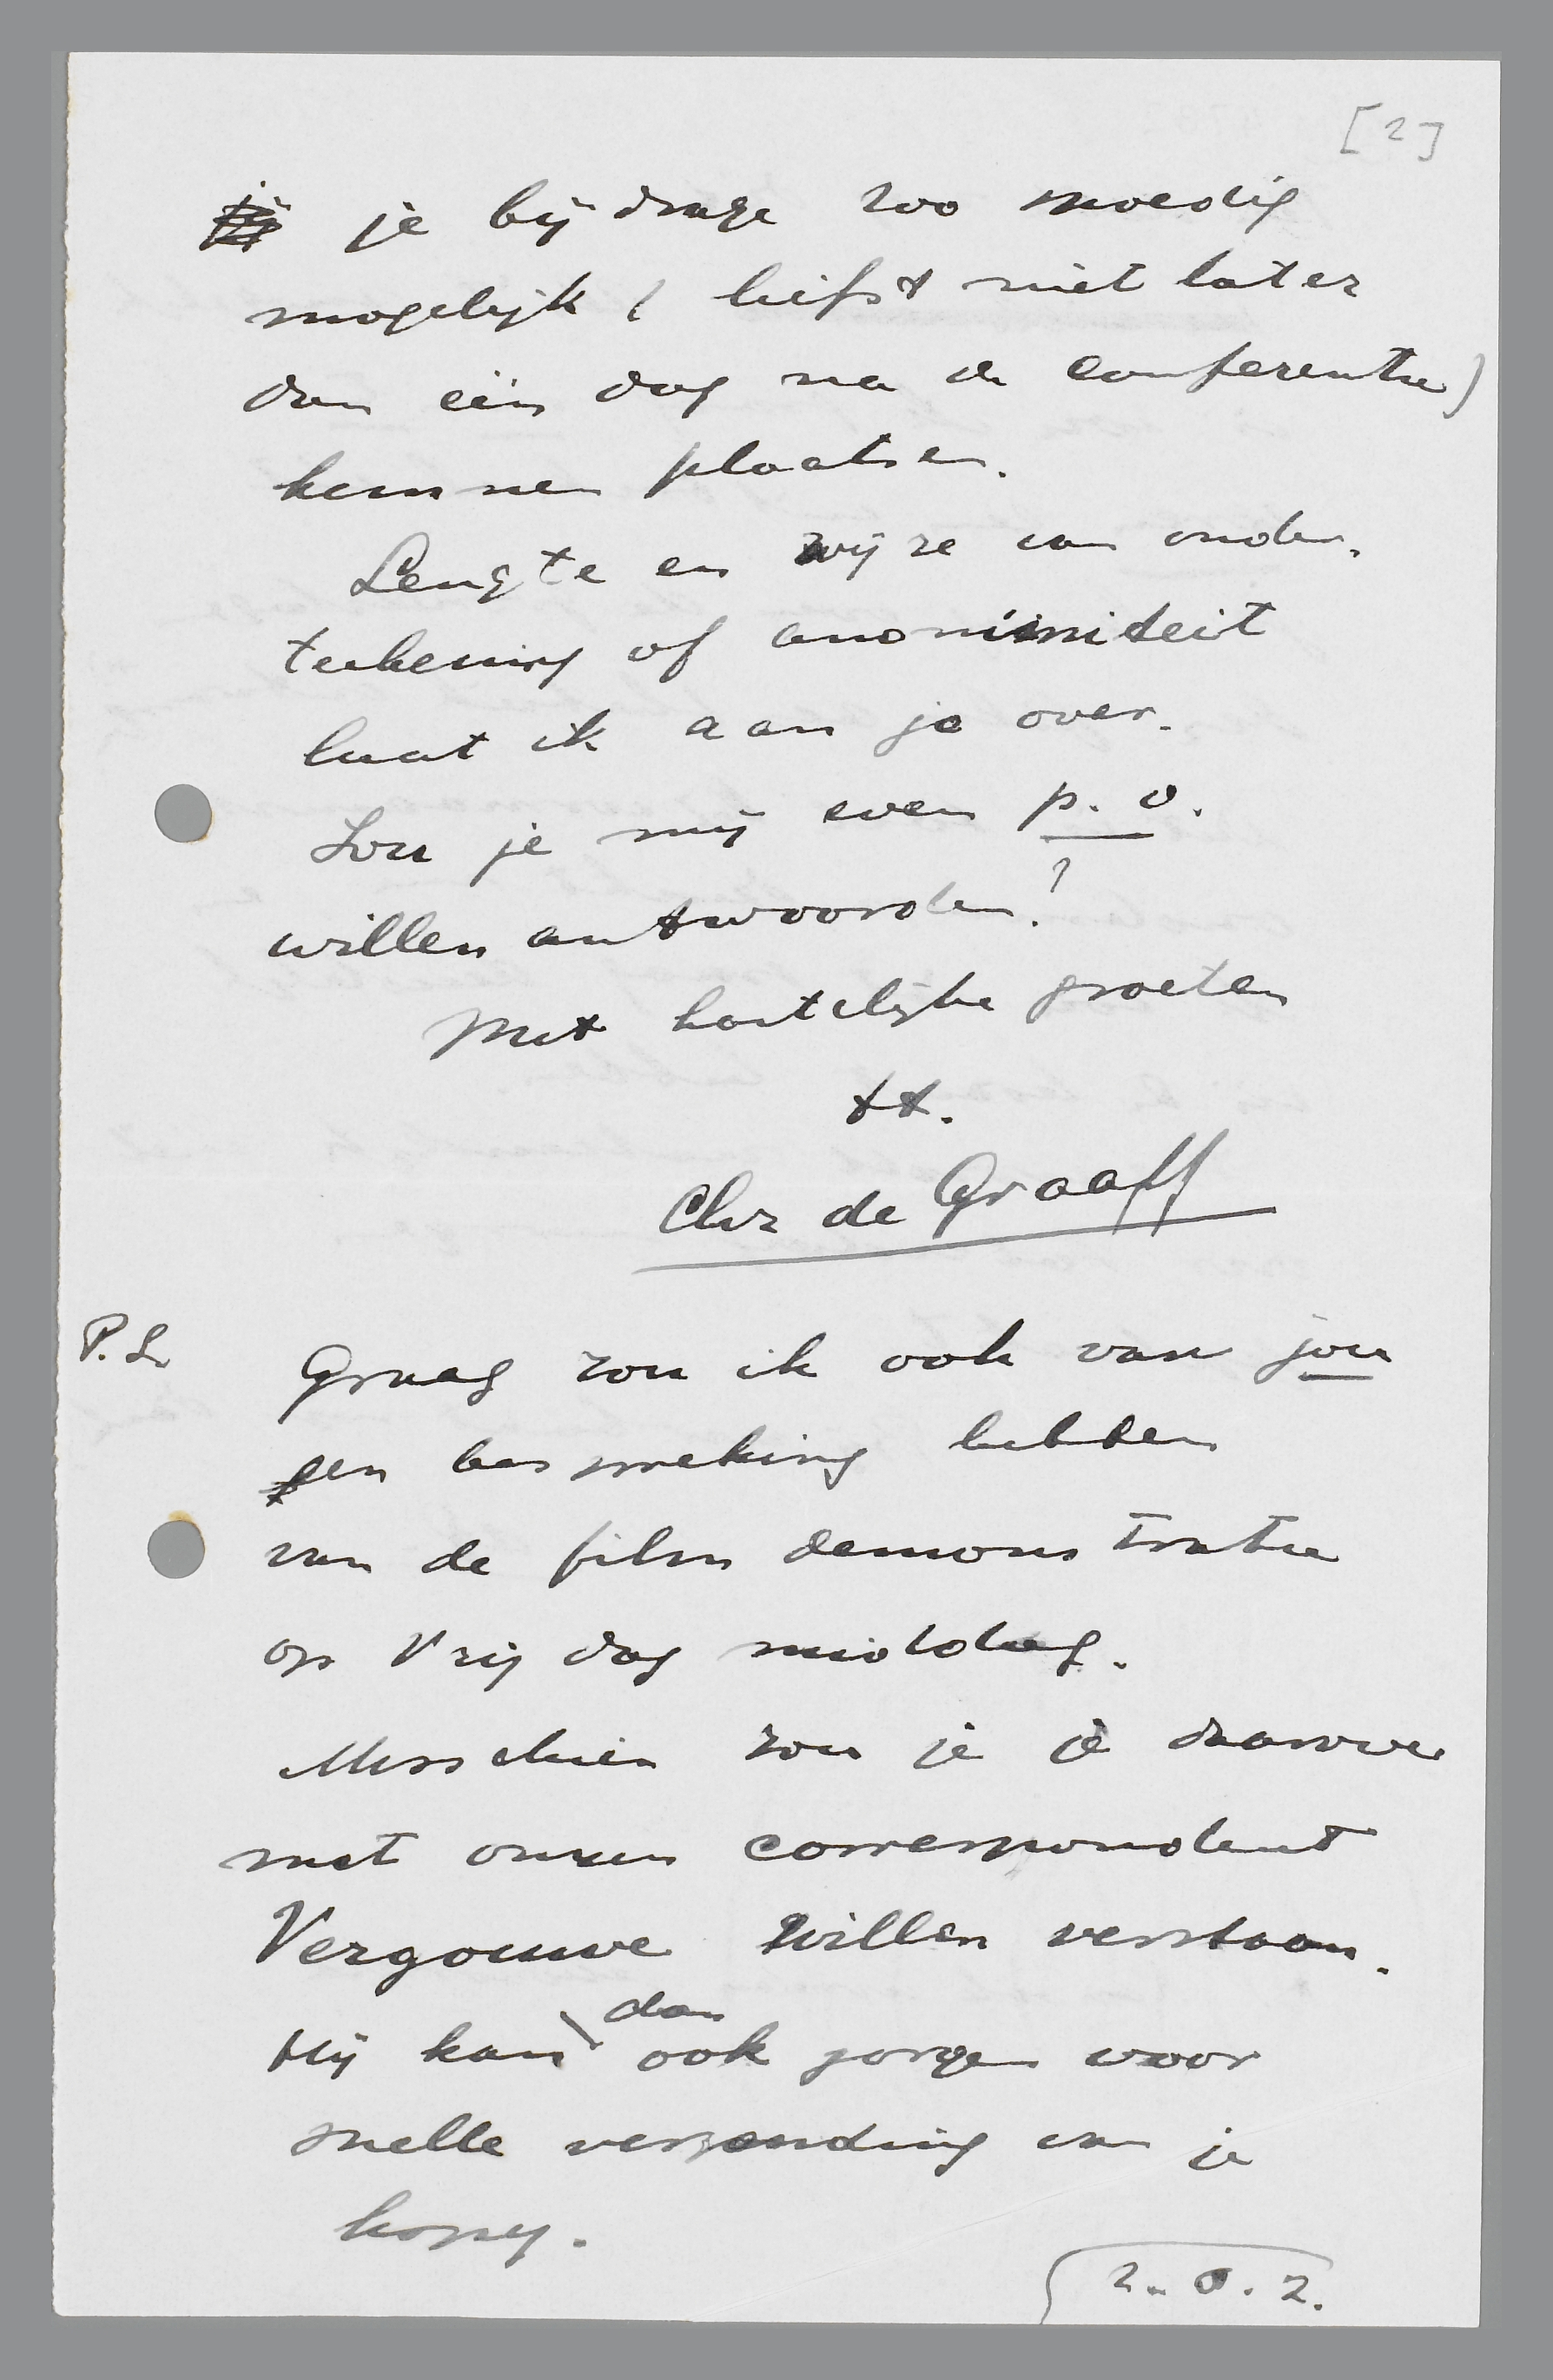 [2]
je bijdrage zoo spoedig
mogelijk (liefst niet later
dan één dag na de conferentie)
kunnen plaatsen.
Lengte en wijze van onder-
tekening of anonimiteit
laat ik aan je over.
Zou je mij even p. o.
willen antwoorden?
Met hartelijke groeten
tt.
Chr de Graaff
P.S. Graag zou ik ook van jou
een bespreking hebben
van de film demonstratie
op Vrijdag middag.
Misschien zou je je daarover
met onzen correspondent
Vergouwe willen verstaan.
Hij kan dan ook zorgen voor
snelle verzending van je
kopy.
z.o.z.